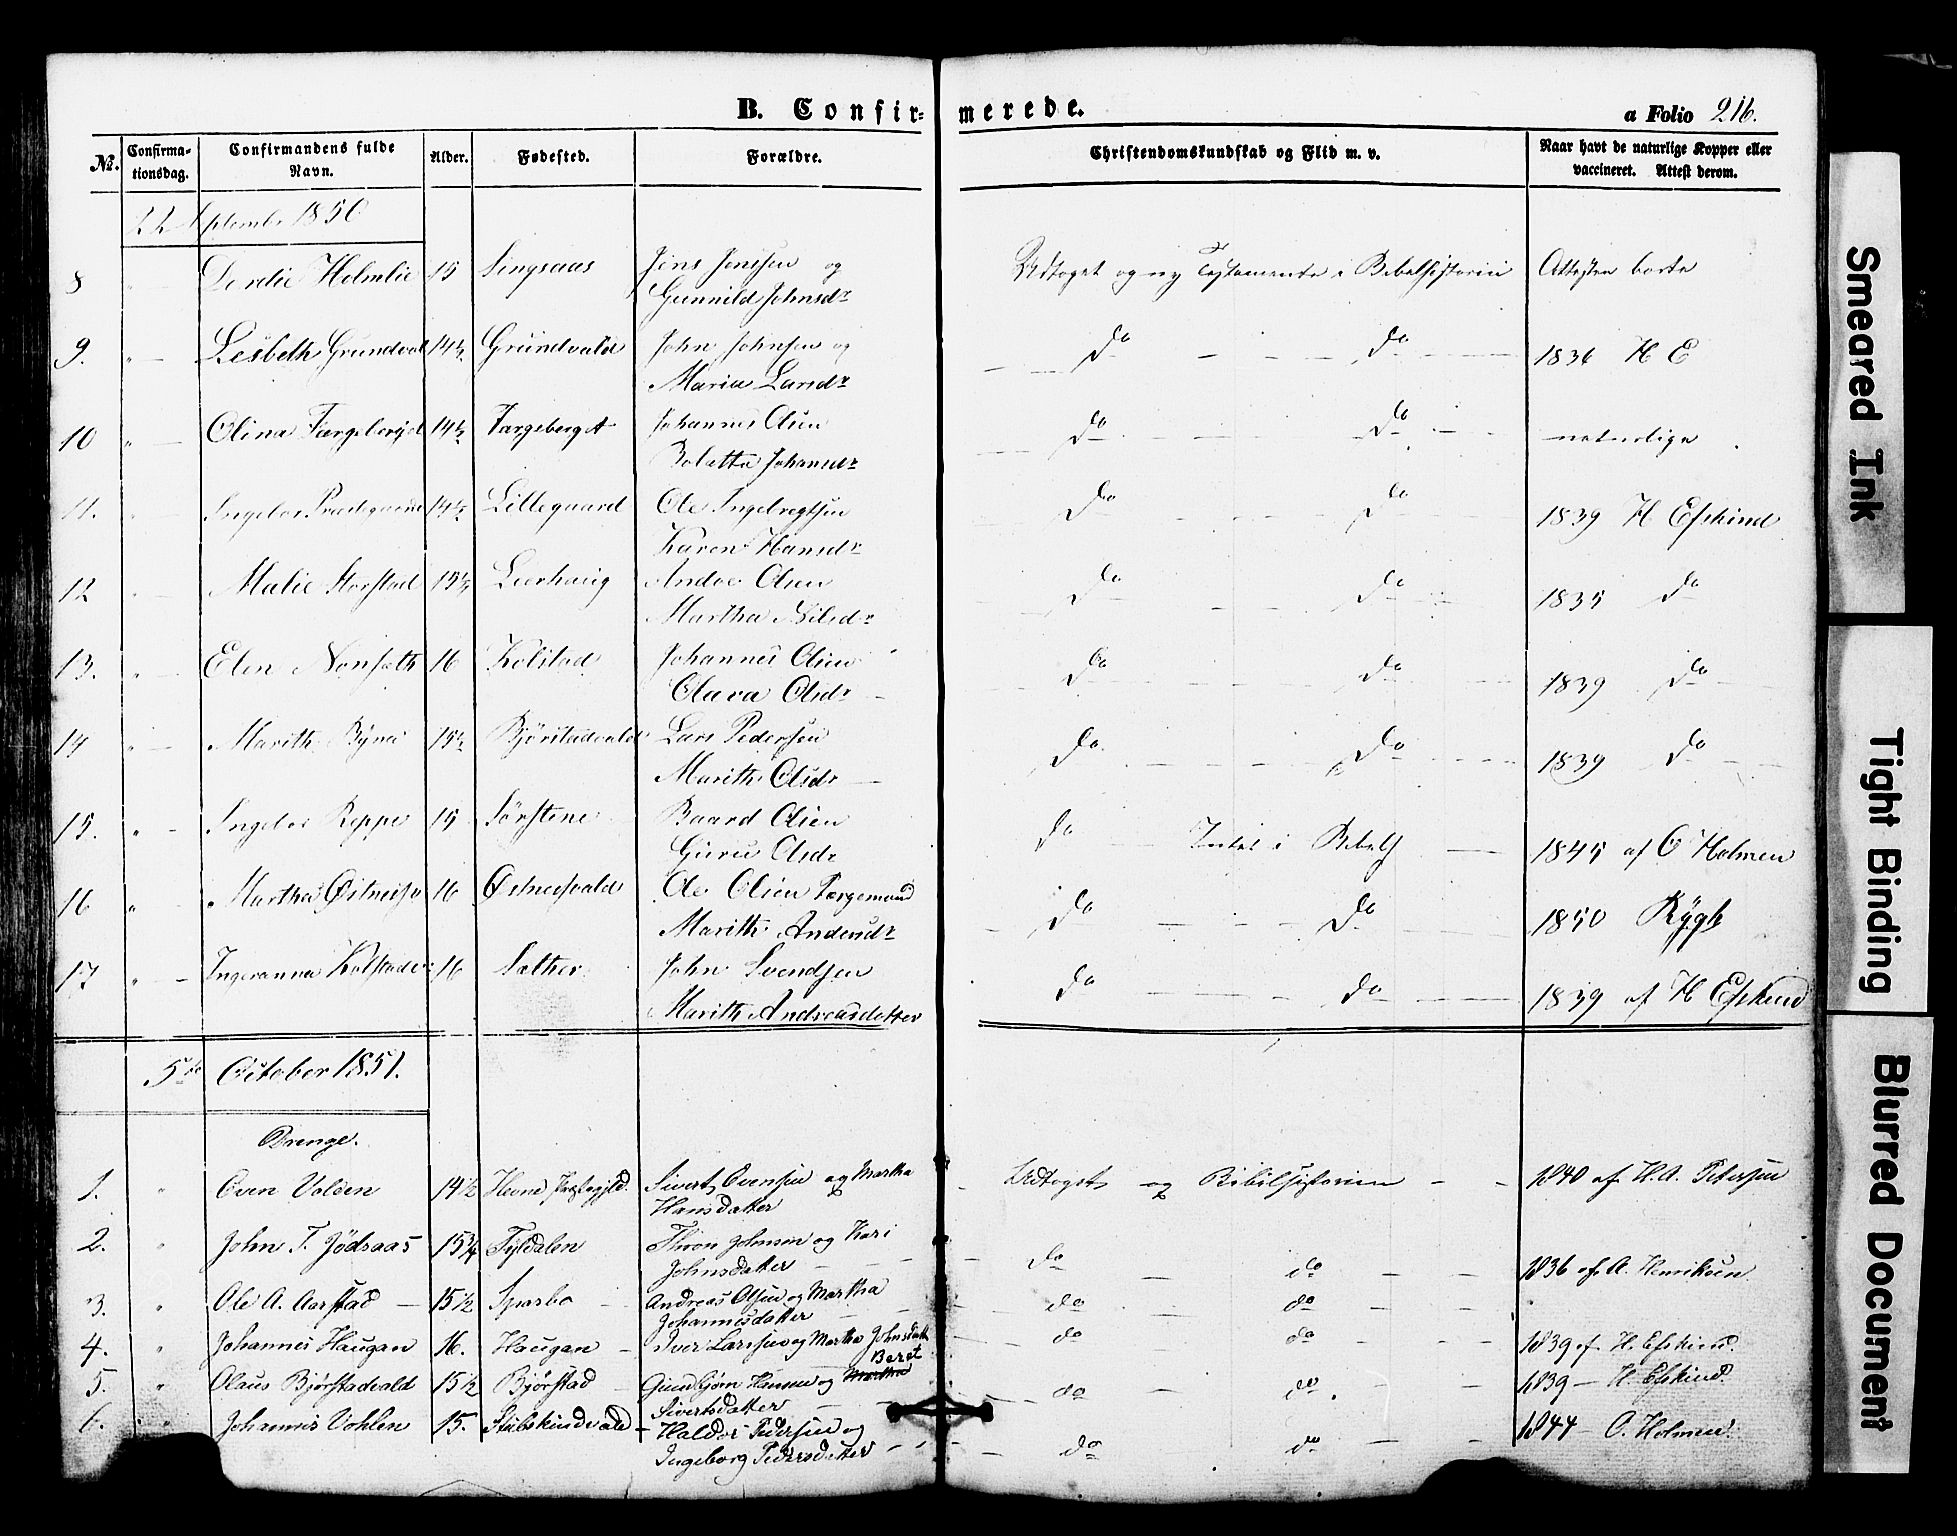 B. Confirmerede.
a Folio 216.
No. Confirmationsdag. Confirmandens fulde Navn. Alder. Fødested. Forældre. Christendomskundskab og Flid m. v. Naar havt de naturlige Kopper eller vaccineret. Attest derom.
22 September 1850
8 " — Dordie Holmlie 15 Singsaas Jens Jensen og Udtoget og ny Testamente i Bibelhistorien Attesten borte
Gunnild Johnsdr
9. " — Lesbeth Grundvald 14½ Grundvald John Johnsen og do — — — do — — 1836 H E
Maria Larsdr
10 " — Olina Færgeberget 14½ Færgeberget Johannes Olsen do — — — do — — naturlige
Boletta Johansdr
11. " — Ingebor Prestegaard 14½ Lillegaard Ole Ingebregtsen do — — — do — — 1839 H Eskind
Karen Hansdr
12 " — Malie Storstad 15½ Leerhaug Andre Olsen do — — — do — — 1835 do
Martha Nilsdr
13. " — Elen Nonseth 16 Kolstad Johannes Olsen do — — — do — — 1839 do
Olava Olsdr —
14 " — Marith Byna 15½ Bjørstadvald Lars Pedersen do — — — do — — 1839 do
Marith Olsdr —
15. " — Ingebor Reppe 15 Sørstene Baard Olsen do — Intet i Bibelh — 1845 af O Holmen
Guru Olsdr
16 " — Martha Østnesv 16 Østnesvald Ole Olsen Færgemand do — — — do — — 1850 Rygh
Marith Andersdr
17 " — Ingeranna Kolstadv: 16 Sather John Svendsen do — — — do — — 1839 af H Eskind
Marith Andreasdatter
5te October 1851.
Drenge.
1. " Even Volden 14½ Hevne Præstegjld. Sivert Evensen og Martha Udtoget og Bibelhistorien — — 1840 af H. A. Petersen
Hansdatter
2. " John T. Jødsaas 15¾ Tyldalen Thron Johnsen og Kari do — do — — 1836 af A. Henriksen
Johnsdatter — — —
3. " Ole A. Aarstad — 15½ Sparbo — Andreas Olsen og Martha do — do — —
Johannesdatter —
4. " Johannes Haugan 16. Haugan — Iver Larssen og Martha Johnsdatt do do — — 1839 af H. Eskind
5. " Olaus Bjørstadvald 15½ Bjørstad — Gundbjørn Hansen og Martha Beret do — do. — — 1839 — H Eskind
Sivertsdatter — —
6. " Johannes Vohlen 15. Stubskindvald — Haldor Pedersen og do do — — 1844 — O. Holmen.
Ingeborg Pedersdatter
Smeared Ink
Tight Binding
Blurred Document